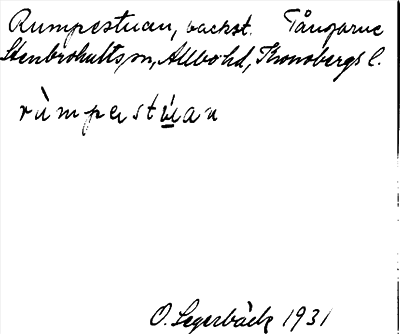 Rumpestuan, backst. Tångarne
Stenbrohults sn, Allbo hd, Kronobergs l.
rùmpɐst ú̲ɐan
O. Segerbäck 1931